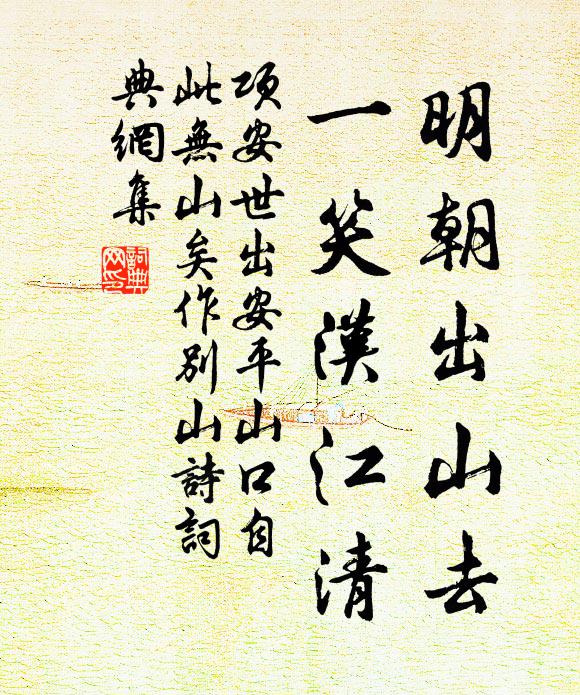 明朝出山去
一笑漢江清
項安世出安平山口自
此無山矣作別山詩詞
典網集
詞典
网